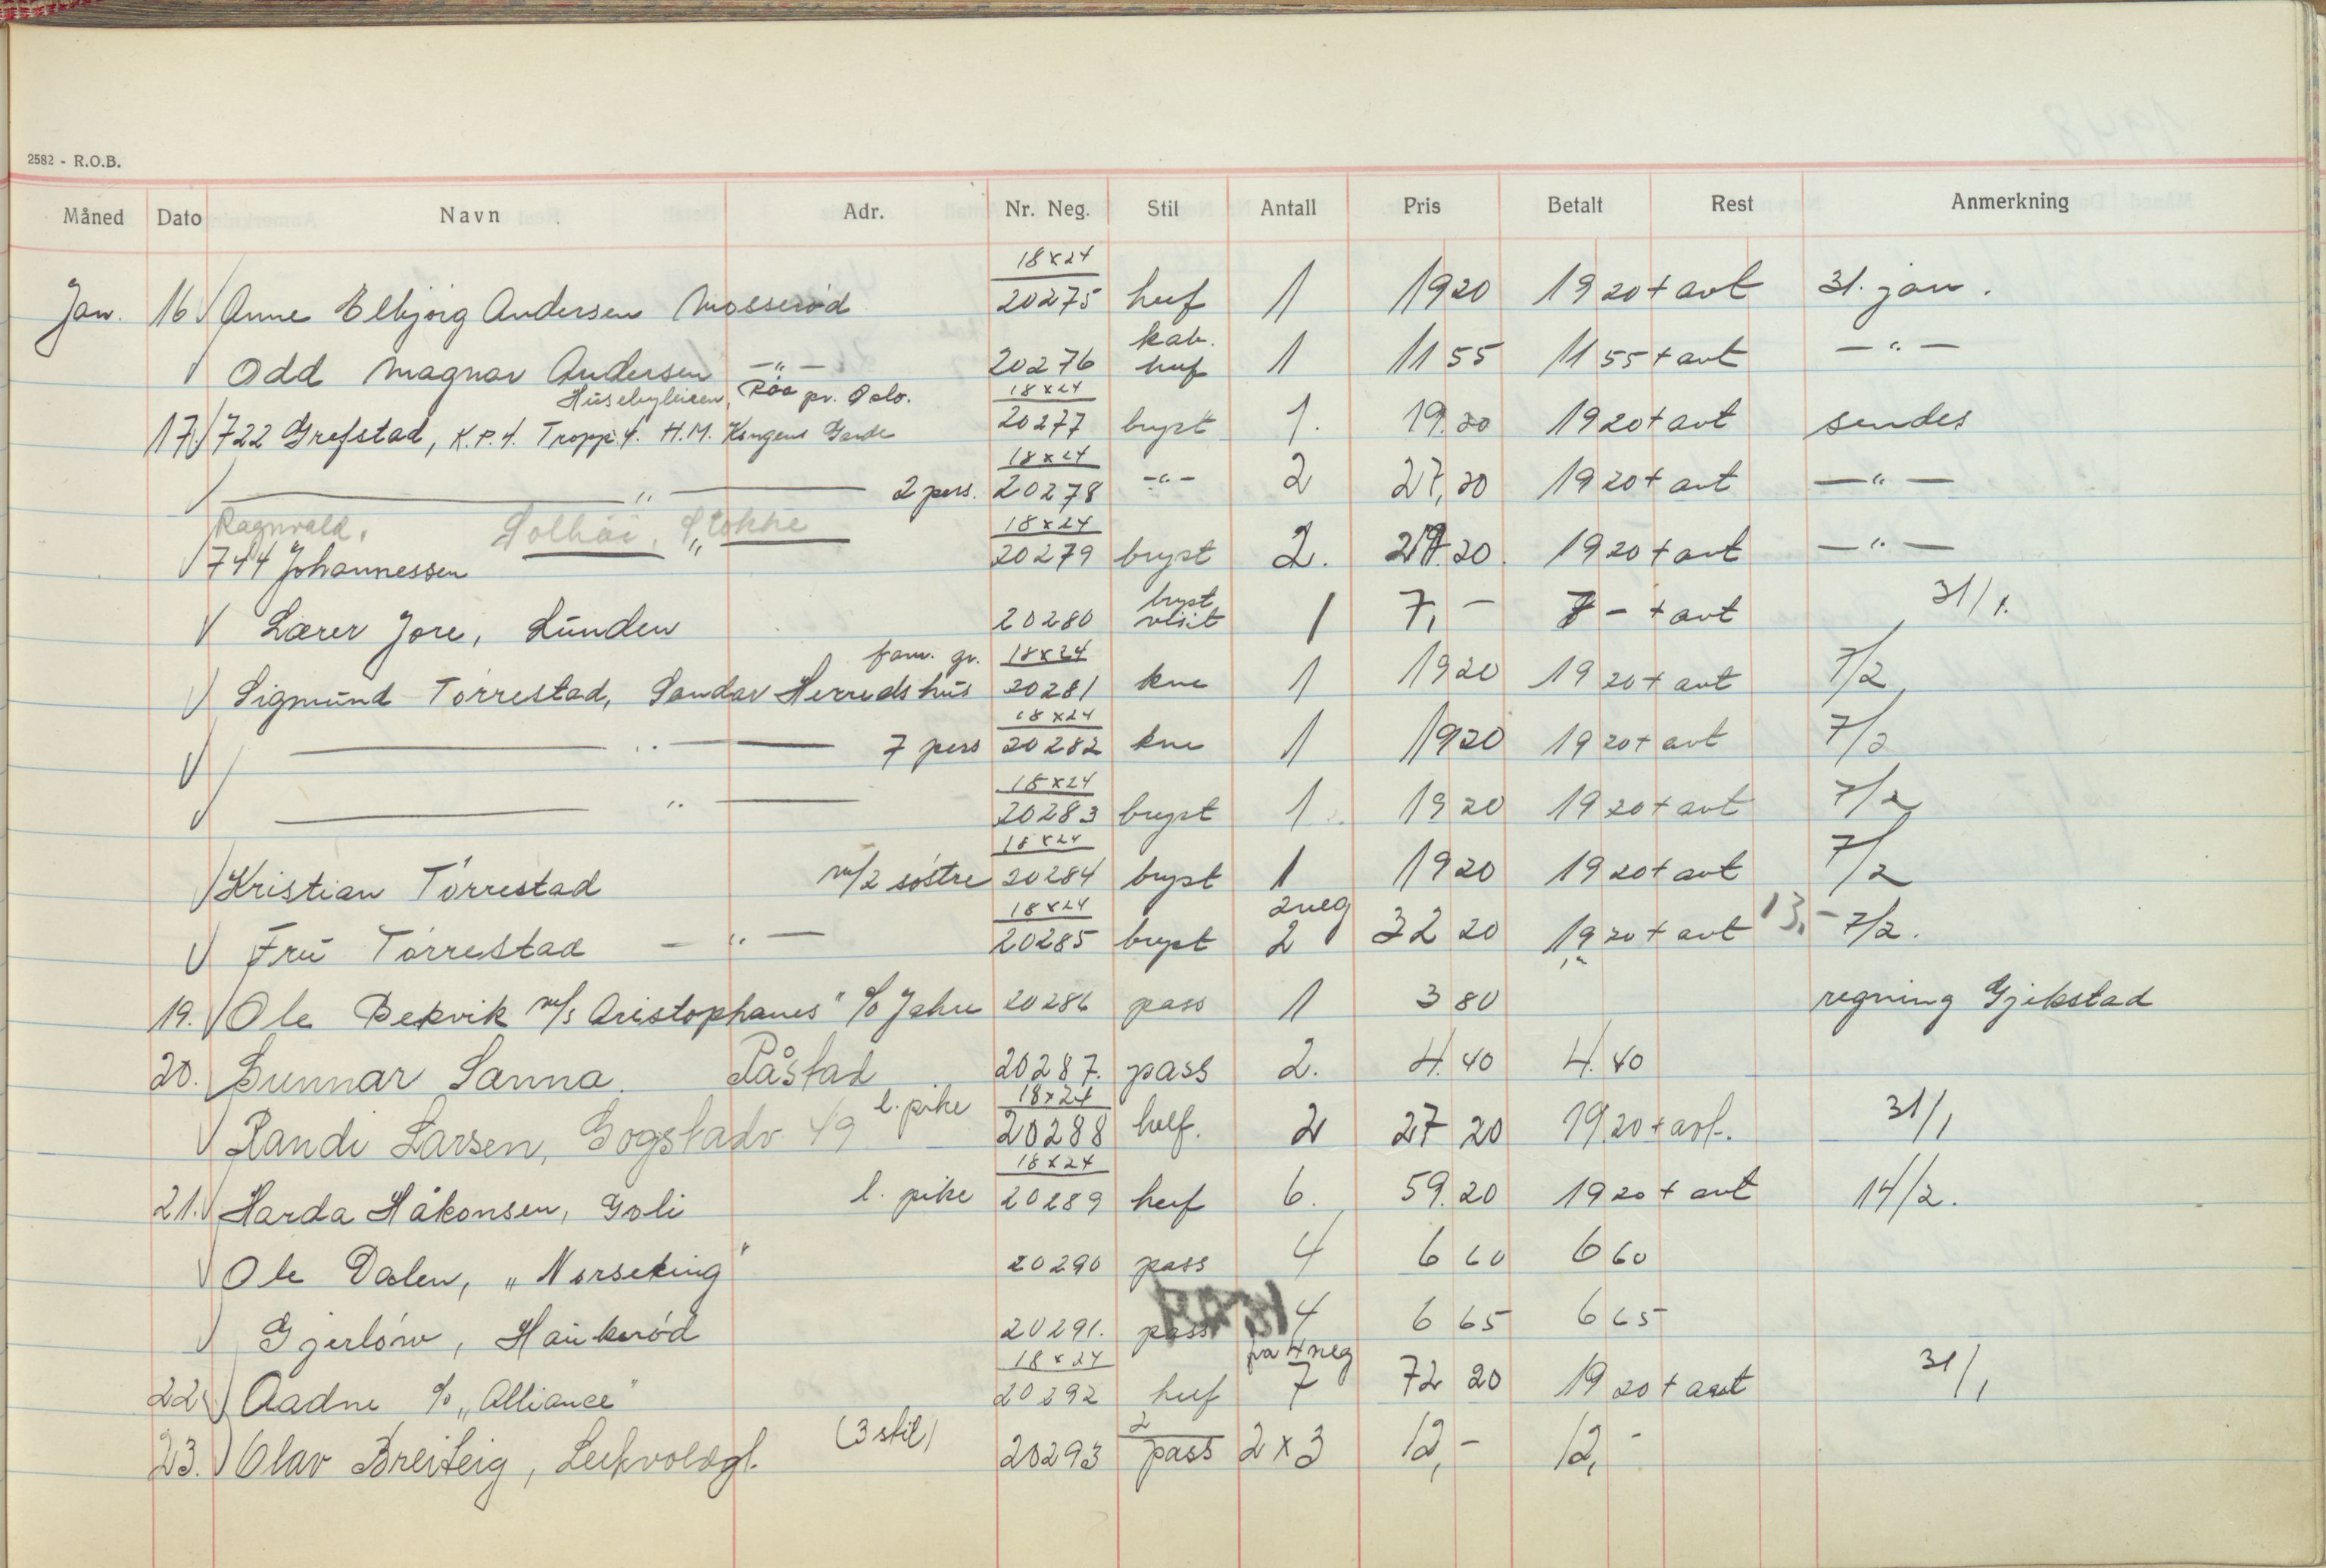 2582 - R.O.B.
Måned Dato Navn Adr. Nr. Neg. Stil Antall Pris Betalt Rest Anmerkning
18x24
Jan. 16 Anne Elbjörg Andersen Mosseröd 20275 huf 1 19 20 19 20 + avt 31. jan.
kab.
Odd Magnar Andersen —"— 20276 huf 1 11 55 11 55 + avt —"—
Husebyleiren, Röa pr. Oslo. 18x24
17. 722 Grefstad, K.P.4. Tropp 4. H.M. Kongens Garde 20277 bryst 1. 19.20 19 20 + avt sendes
18x24
—"— 2 pers. 20278 —"— 2 27,20 19 20 + avt —"—
Ragnvald. Solhöi, Stokke 18x24
744 Johannessen 20279 bryst 2. 27.20. 19 20 + avt —"—
bryst
Lærer Jore, Lunden 20280 visit 1 7,— 7 — + avt 31/1.
fam. gr. 18x24
Sigmund Törrestad, Sandar Herredshus 20281 kne 1 19 20 19 20 + avt 7/2
18x24
—"— 7 pers 20282 kne 1 19 20 19 20 + avt 7/2
18x24
—"— 20283 bryst 1 19 20 19 20 + avt 7/2
18x24
Kristian Törrestad m/2 söstre 20284 bryst 1 19 20 19 20 + avt 7/2
18x24 2 neg
Fru Törrestad —"— 20285 bryst 2 32 20 19 20 + avt 13,— 7/2.
19. Ole Bekvik m/s Aristophanes" c/o Jahre 20286 pass 1 3 80 regning Gjekstad
20. Gunnar Sanna. Råstad 20287. pass 2. 4.40 4.40
l. pike 18x24
Randi Larsen, Gogstadv 49 20288 helf. 2 27 20 19.20 + avt. 31/1
18x24
21. Harda Håkonsen, Goli l. pike 20289 huf 6. 59.20 19 20 + avt 14/2.
Ole Dalen, „Norseking" 20290 pass 4 6 60 6 60
Gjerlöw, Haukeröd 20291. pass 4 6 65 6 65
18x24 fra 4 neg
22 Aadne c/o „Alliance" 20292 huf 7 72 20 19 20 + avt 31/1
(3 stil) 2
23. Olav Breiteig, Leikvoldgt. 20293 pass 2 x 3 12,— 12,—